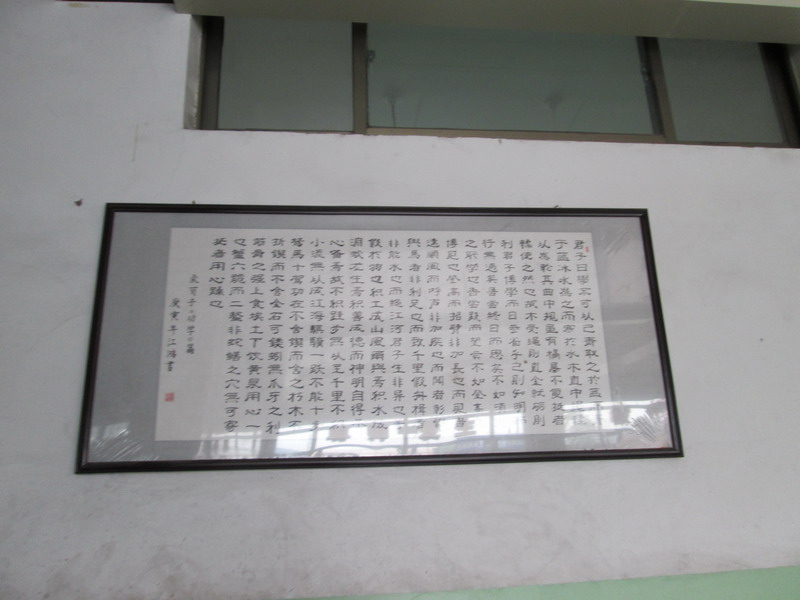 君子曰學不可以已青取之於藍
于藍冰水為之而寒於水木直中繩輮
以為輪其曲中規雖有槁暴不復挺者
輮使之然也故木受繩則直金就礪則
利君子博學而日參省乎己則知明而
行無過矣吾嘗終日而思矣不如須
之所學也吾嘗跂而望矣不如登高
博見也登高而招臂非加長也而見者
遠順風而呼聲非加疾也而聞者彰
輿馬者非利足也而致千里假舟楫
非能水也而絕江河君子生非異也
假於物也积土成山風雨興焉积水成
淵蛟龙生焉积善成德而神明自得
心备焉故不积跬步無以至千里不积
小流無以成江海騏驥一跃不能十步
驽馬十驾功在不舍鍥而舍之朽木不
折鍥而不舍金石可鏤螾無爪牙之利
筋骨之強上食埃土下饮黄泉用心一
也蟹六跪而二螯非蛇蟺之穴無可寄
託者用心躁也
录荀子劝學篇
庚寅年江
書